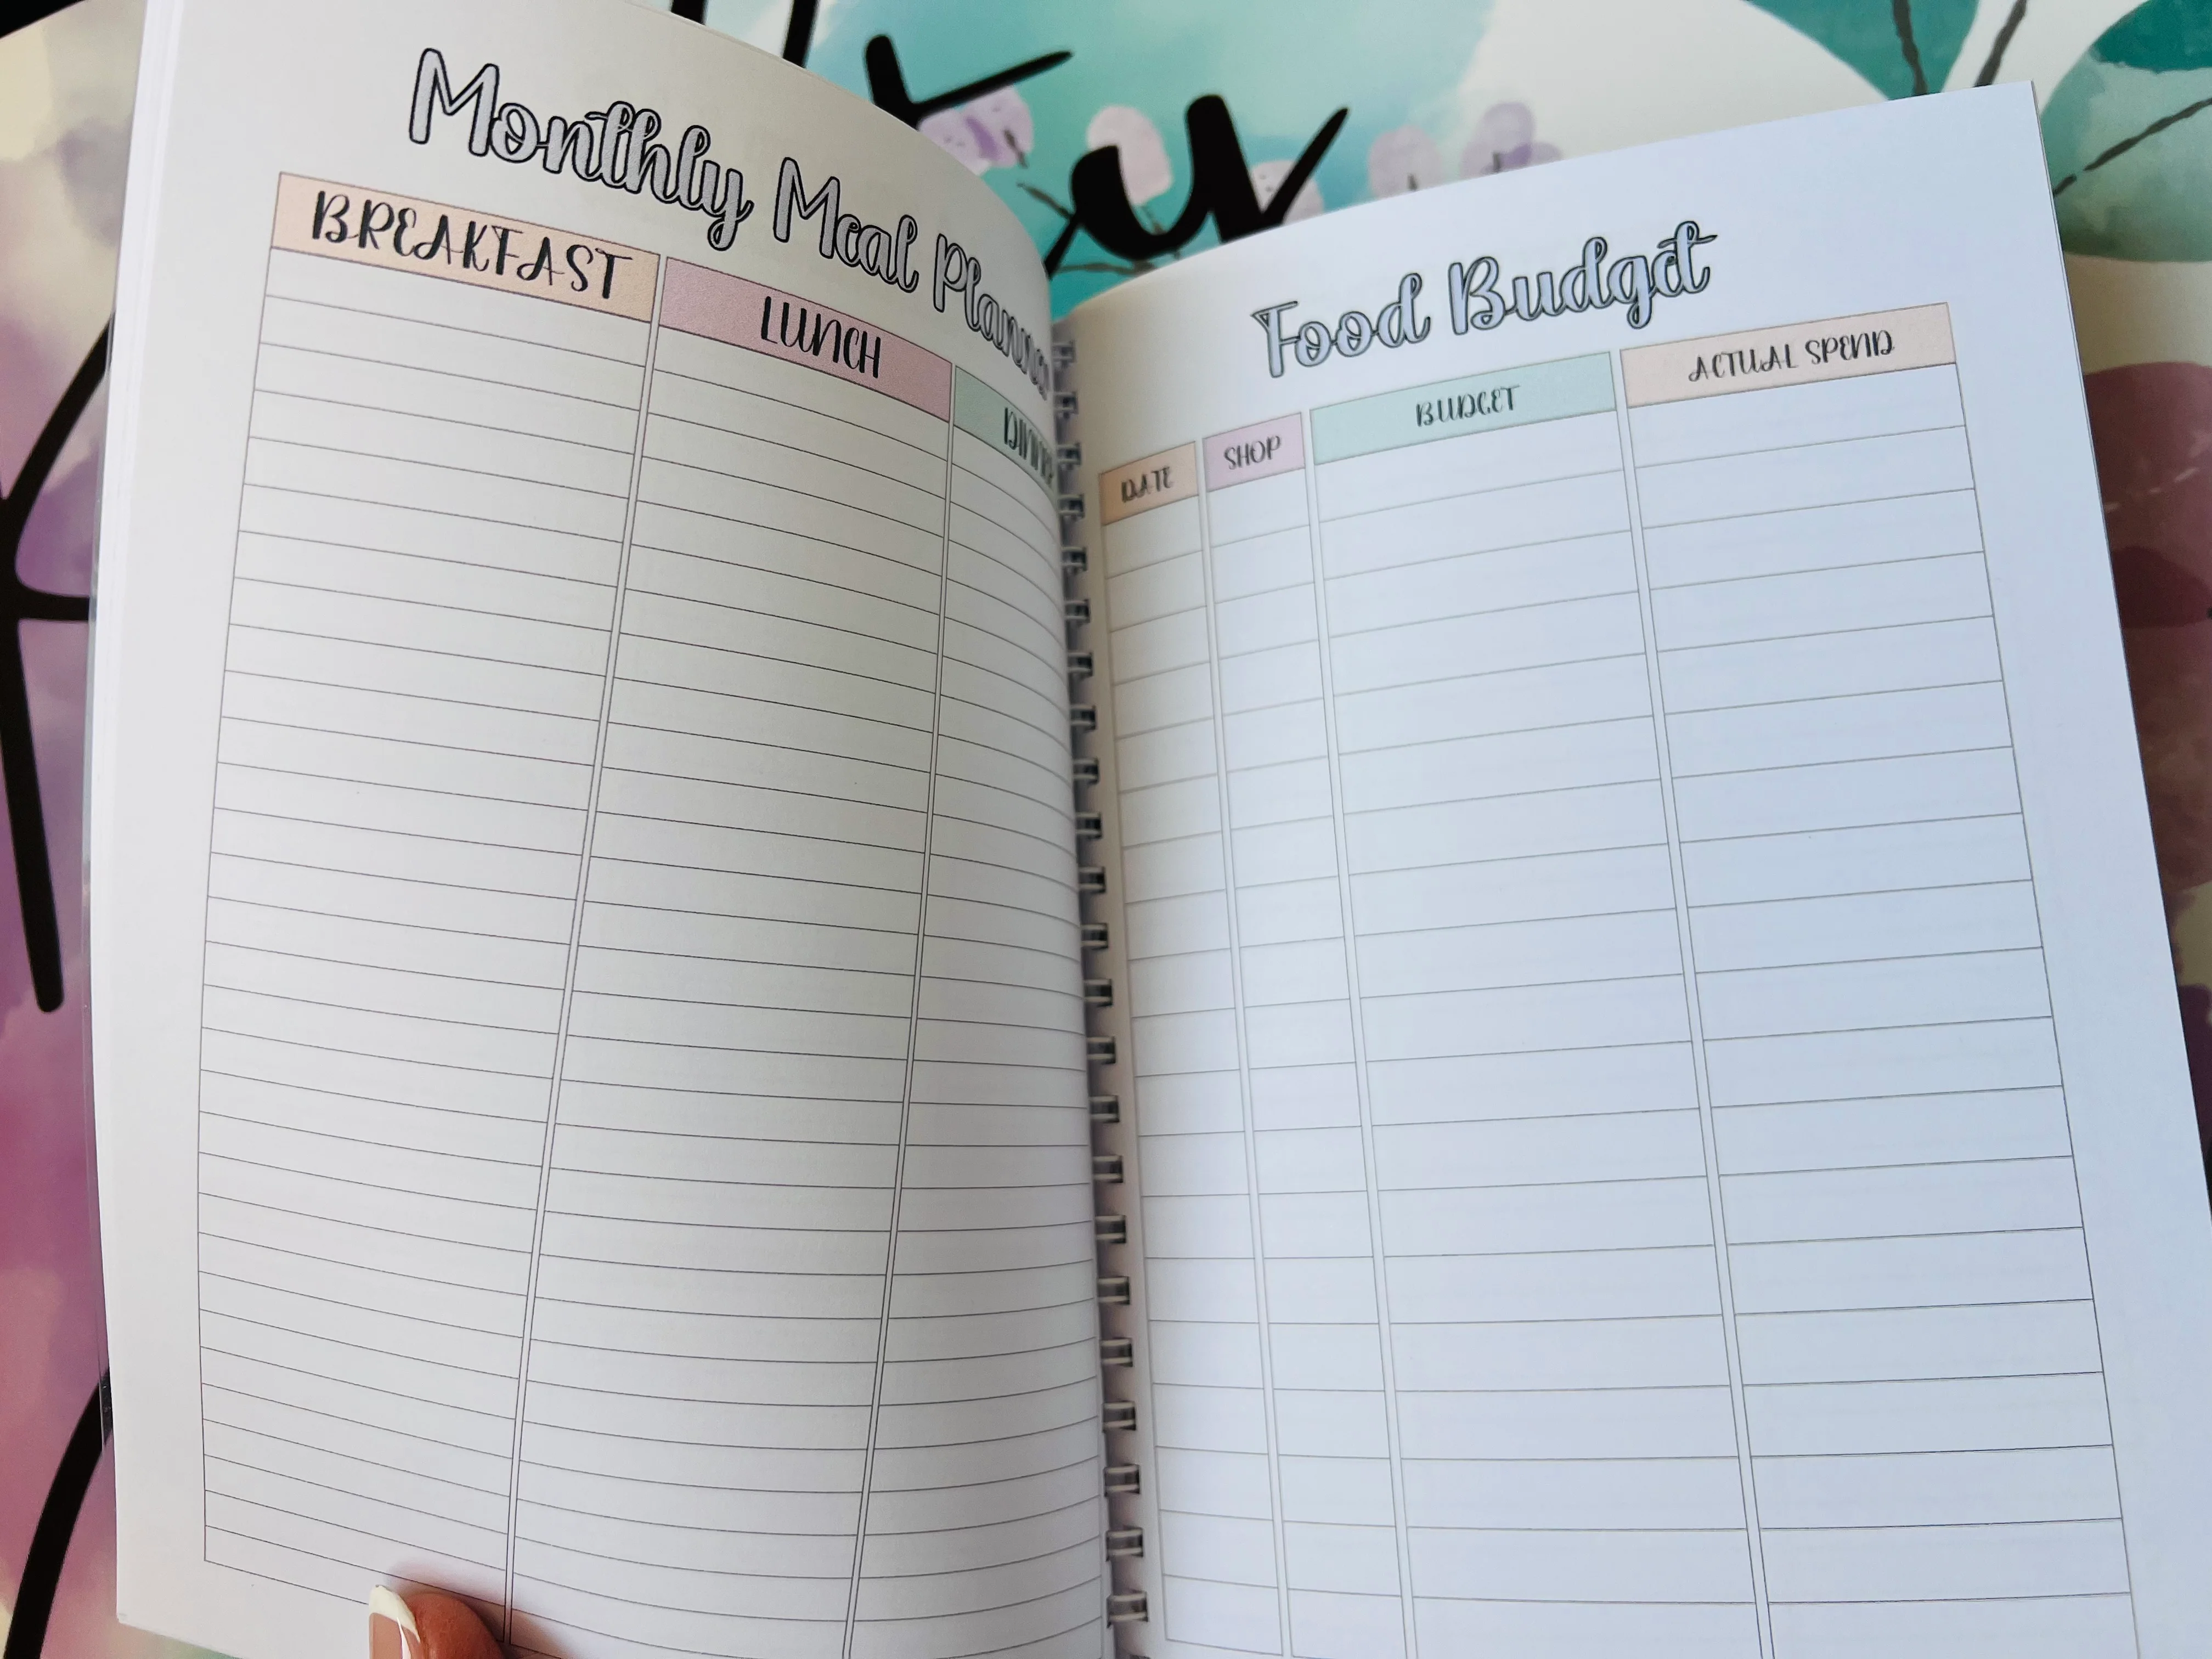 Monthly Meal Planner
BREAKFAST
LUNCH
Food Budget
DATE
SHOP
BUDGET
ACTUAL SPEND